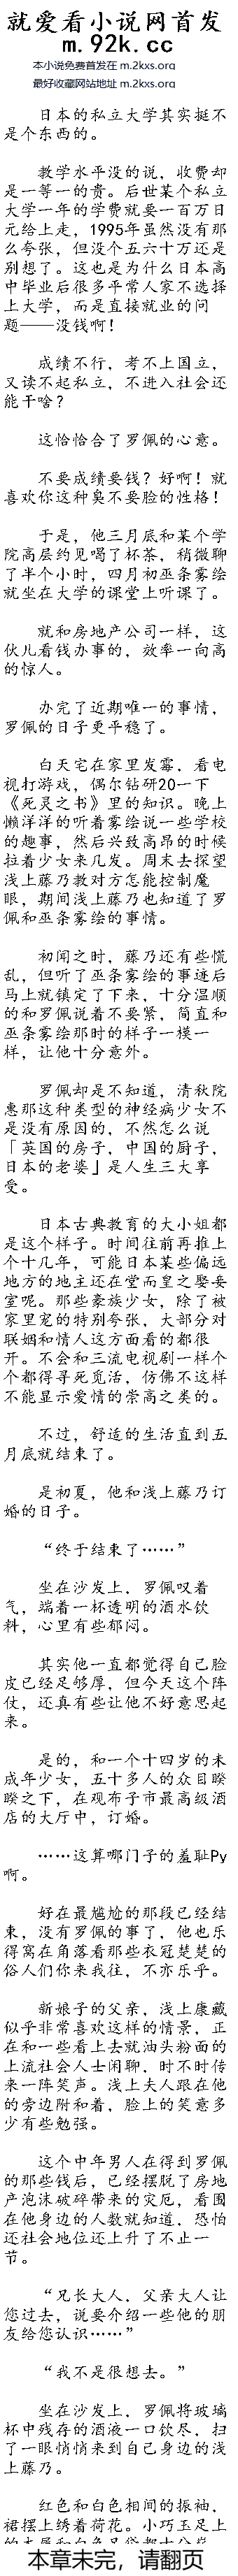 就爱看小说网首发
m.92k.cc
本小说免费首发在 m.2kxs.org
最好收藏网站地址 m.2kxs.org
日本的私立大学其实挺不
是个东西的。
教学水平没的说，收费却
是一等一的贵。后世某个私立
大学一年的学费就要一百万日
元给上走，1995年虽然没有那
么夸张，但没个五六十万还是
别想了。这也是为什么日本高
中毕业后很多平常人家不选择
上大学，而是直接就业的问
题——没钱啊！
成绩不行，考不上国立，
又读不起私立，不进入社会还
能干啥？
这恰恰合了罗佩的心意。
不要成绩要钱？好啊！就
喜欢你这种臭不要脸的性格！
于是，他三月底和某个学
院高层约见喝了杯茶，稍微聊
了半个小时，四月初巫条雾绘
就坐在大学的课堂上听课了。
就和房地产公司一样，这
伙儿看钱办事的，效率一向高
的惊人。
办完了近期唯一的事情，
罗佩的日子更平稳了。
白天宅在家里发霉，看电
视打游戏，偶尔钻研20一下
《死灵之书》里的知识。晚上
懒洋洋的听着雾绘说一些学校
的趣事，然后兴致高昂的时候
拉着少女来几发。周末去探望
浅上藤乃教对方怎能控制魔
眼，期间浅上藤乃也知道了罗
佩和巫条雾绘的事情。
初闻之时，藤乃还有些慌
乱，但听了巫条雾绘的事迹后
马上就镇定了下来，十分温顺
的和罗佩说着不要紧，简直和
巫条雾绘那时的样子一模一
样，让他十分意外。
罗佩却是不知道，清秋院
惠那这种类型的神经病少女不
是没有原因的，不然怎么说
「英国的房子，中国的厨子，
日本的老婆」是人生三大享
受。
日本古典教育的大小姐都
是这个样子。时间往前再推上
个十几年，可能日本某些偏远
地方的地主还在堂而皇之娶妾
室呢。那些豪族少女，除了被
家里宠的特别夸张，大部分对
联姻和情人这方面看的都很
开。不会和三流电视剧一样个
个都得寻死觅活，仿佛不这样
不能显示爱情的崇高之类的。
不过，舒适的生活直到五
月底就结束了。
是初夏，他和浅上藤乃订
婚的日子。
“终于结束了……”
坐在沙发上，罗佩叹着
气，端着一杯透明的酒水饮
料，心里有些郁闷。
其实他一直都觉得自己脸
皮已经足够厚，但今天这个阵
仗，还真有些让他不好意思起
来。
是的，和一个十四岁的未
成年少女，五十多人的众目睽
睽之下，在观布子市最高级酒
店的大厅中，订婚。
……这算哪门子的羞耻Py
啊。
好在最尴尬的那段已经结
束，没有罗佩的事了，他也乐
得窝在角落看那些衣冠楚楚的
俗人们你来我往，不亦乐乎。
新娘子的父亲，浅上康藏
似乎非常喜欢这样的情景，正
在和一些看上去就油头粉面的
上流社会人士闲聊，时不时传
来一阵笑声。浅上夫人跟在他
的旁边附和着，脸上的笑意多
少有些勉强。
这个中年男人在得到罗佩
的那些钱后，已经摆脱了房地
产泡沫破碎带来的灾厄，看围
在他身边的人数就知道，恐怕
还社会地位还上升了不止一
节。
“兄长大人，父亲大人让
您过去，说要介绍一些他的朋
友给您认识……”
“我不是很想去。”
坐在沙发上，罗佩将玻璃
杯中残存的酒液一口饮尽，扫
了一眼悄悄来到自己身边的浅
上藤乃。
红色和白色相间的振袖，
裙摆上绣着荷花。小巧玉足上
本章未完，请翻页